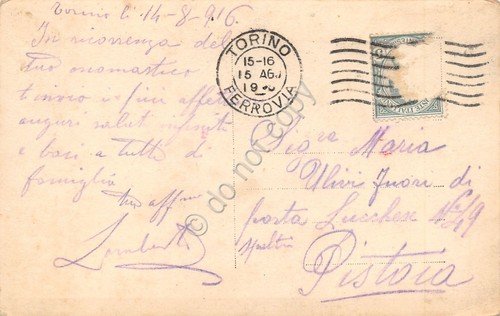 Torino li 14-8-916.
In ricorrenza del
tuo onomastico
t'invio i più affett
auguri saluti infiniti
e baci a tutti di
famiglia
tuo affmo
Lamberto
TORINO
15-16
15 AGO
FERROVIA
Sigra Maria
Ulivi Fuori di
porta Lucchese
Pistoia
do not copy